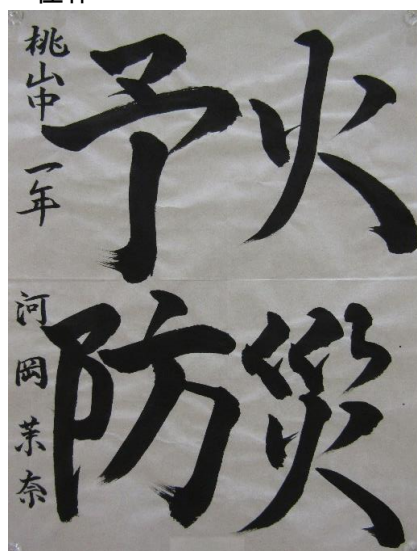 火災
予防
桃山中 一年
河岡茉奈